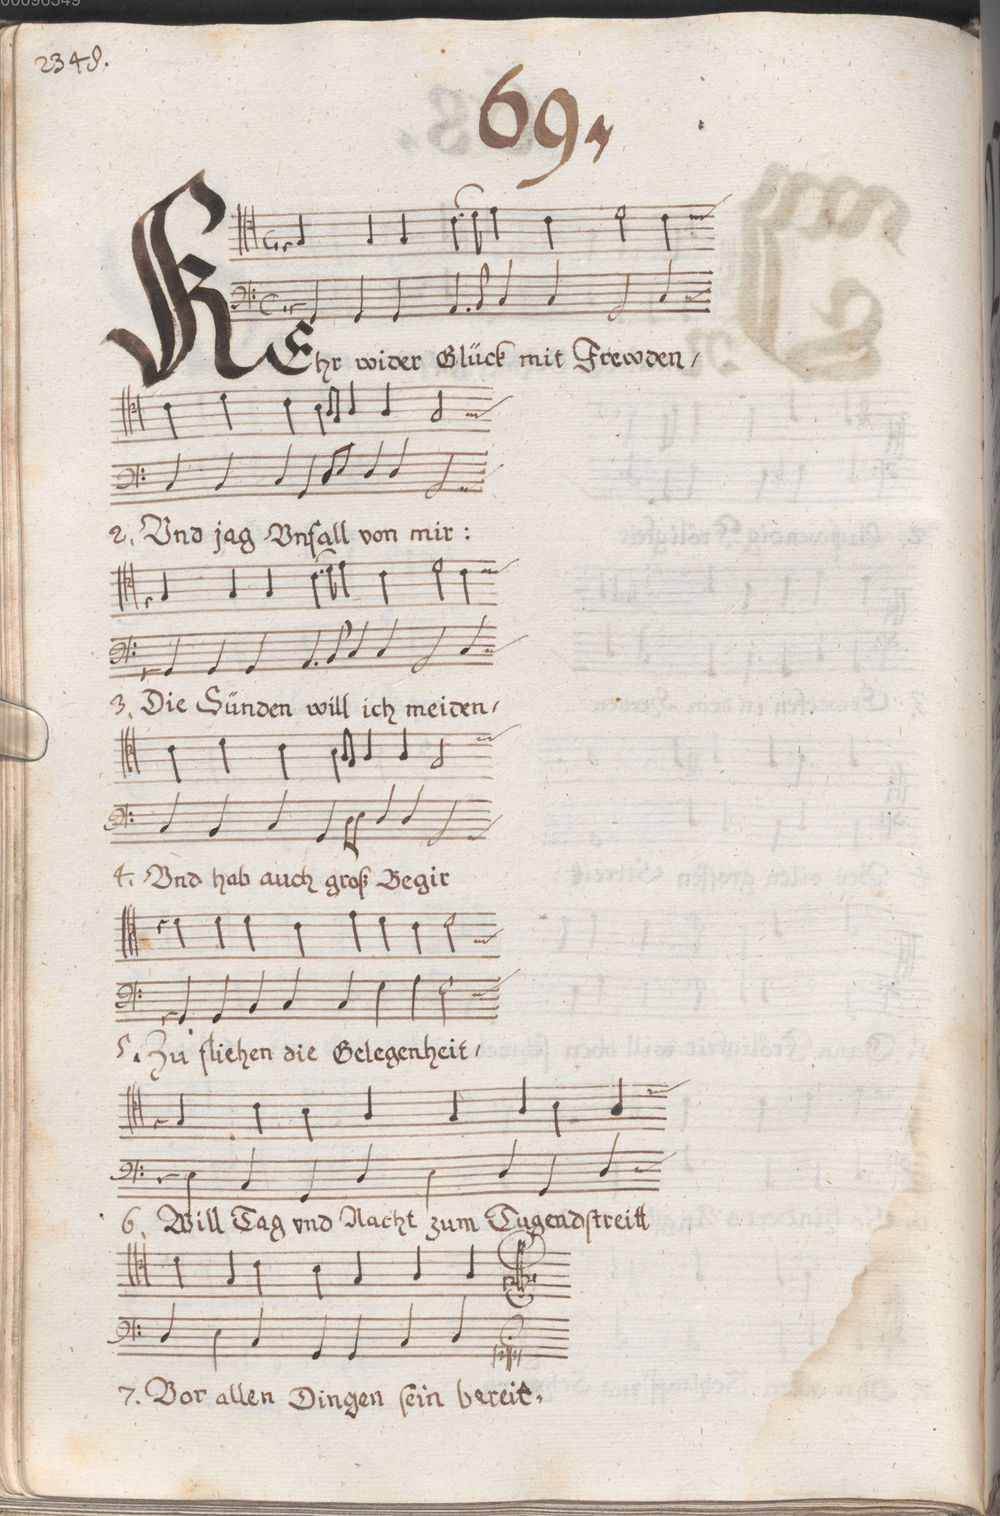 00096349
2348.
69.
KEhr wider Glück mit Frewden,
2. Vnd jag Vnfall von mir:
3. Die Sünden will ich meiden,
4. Vnd hab auch groß Begir
5. Zu fliehen die Gelegenheit,
6. Will Tag vnd Nacht zum Tugendstreitt
7. Vor allen Dingen sein bereit,